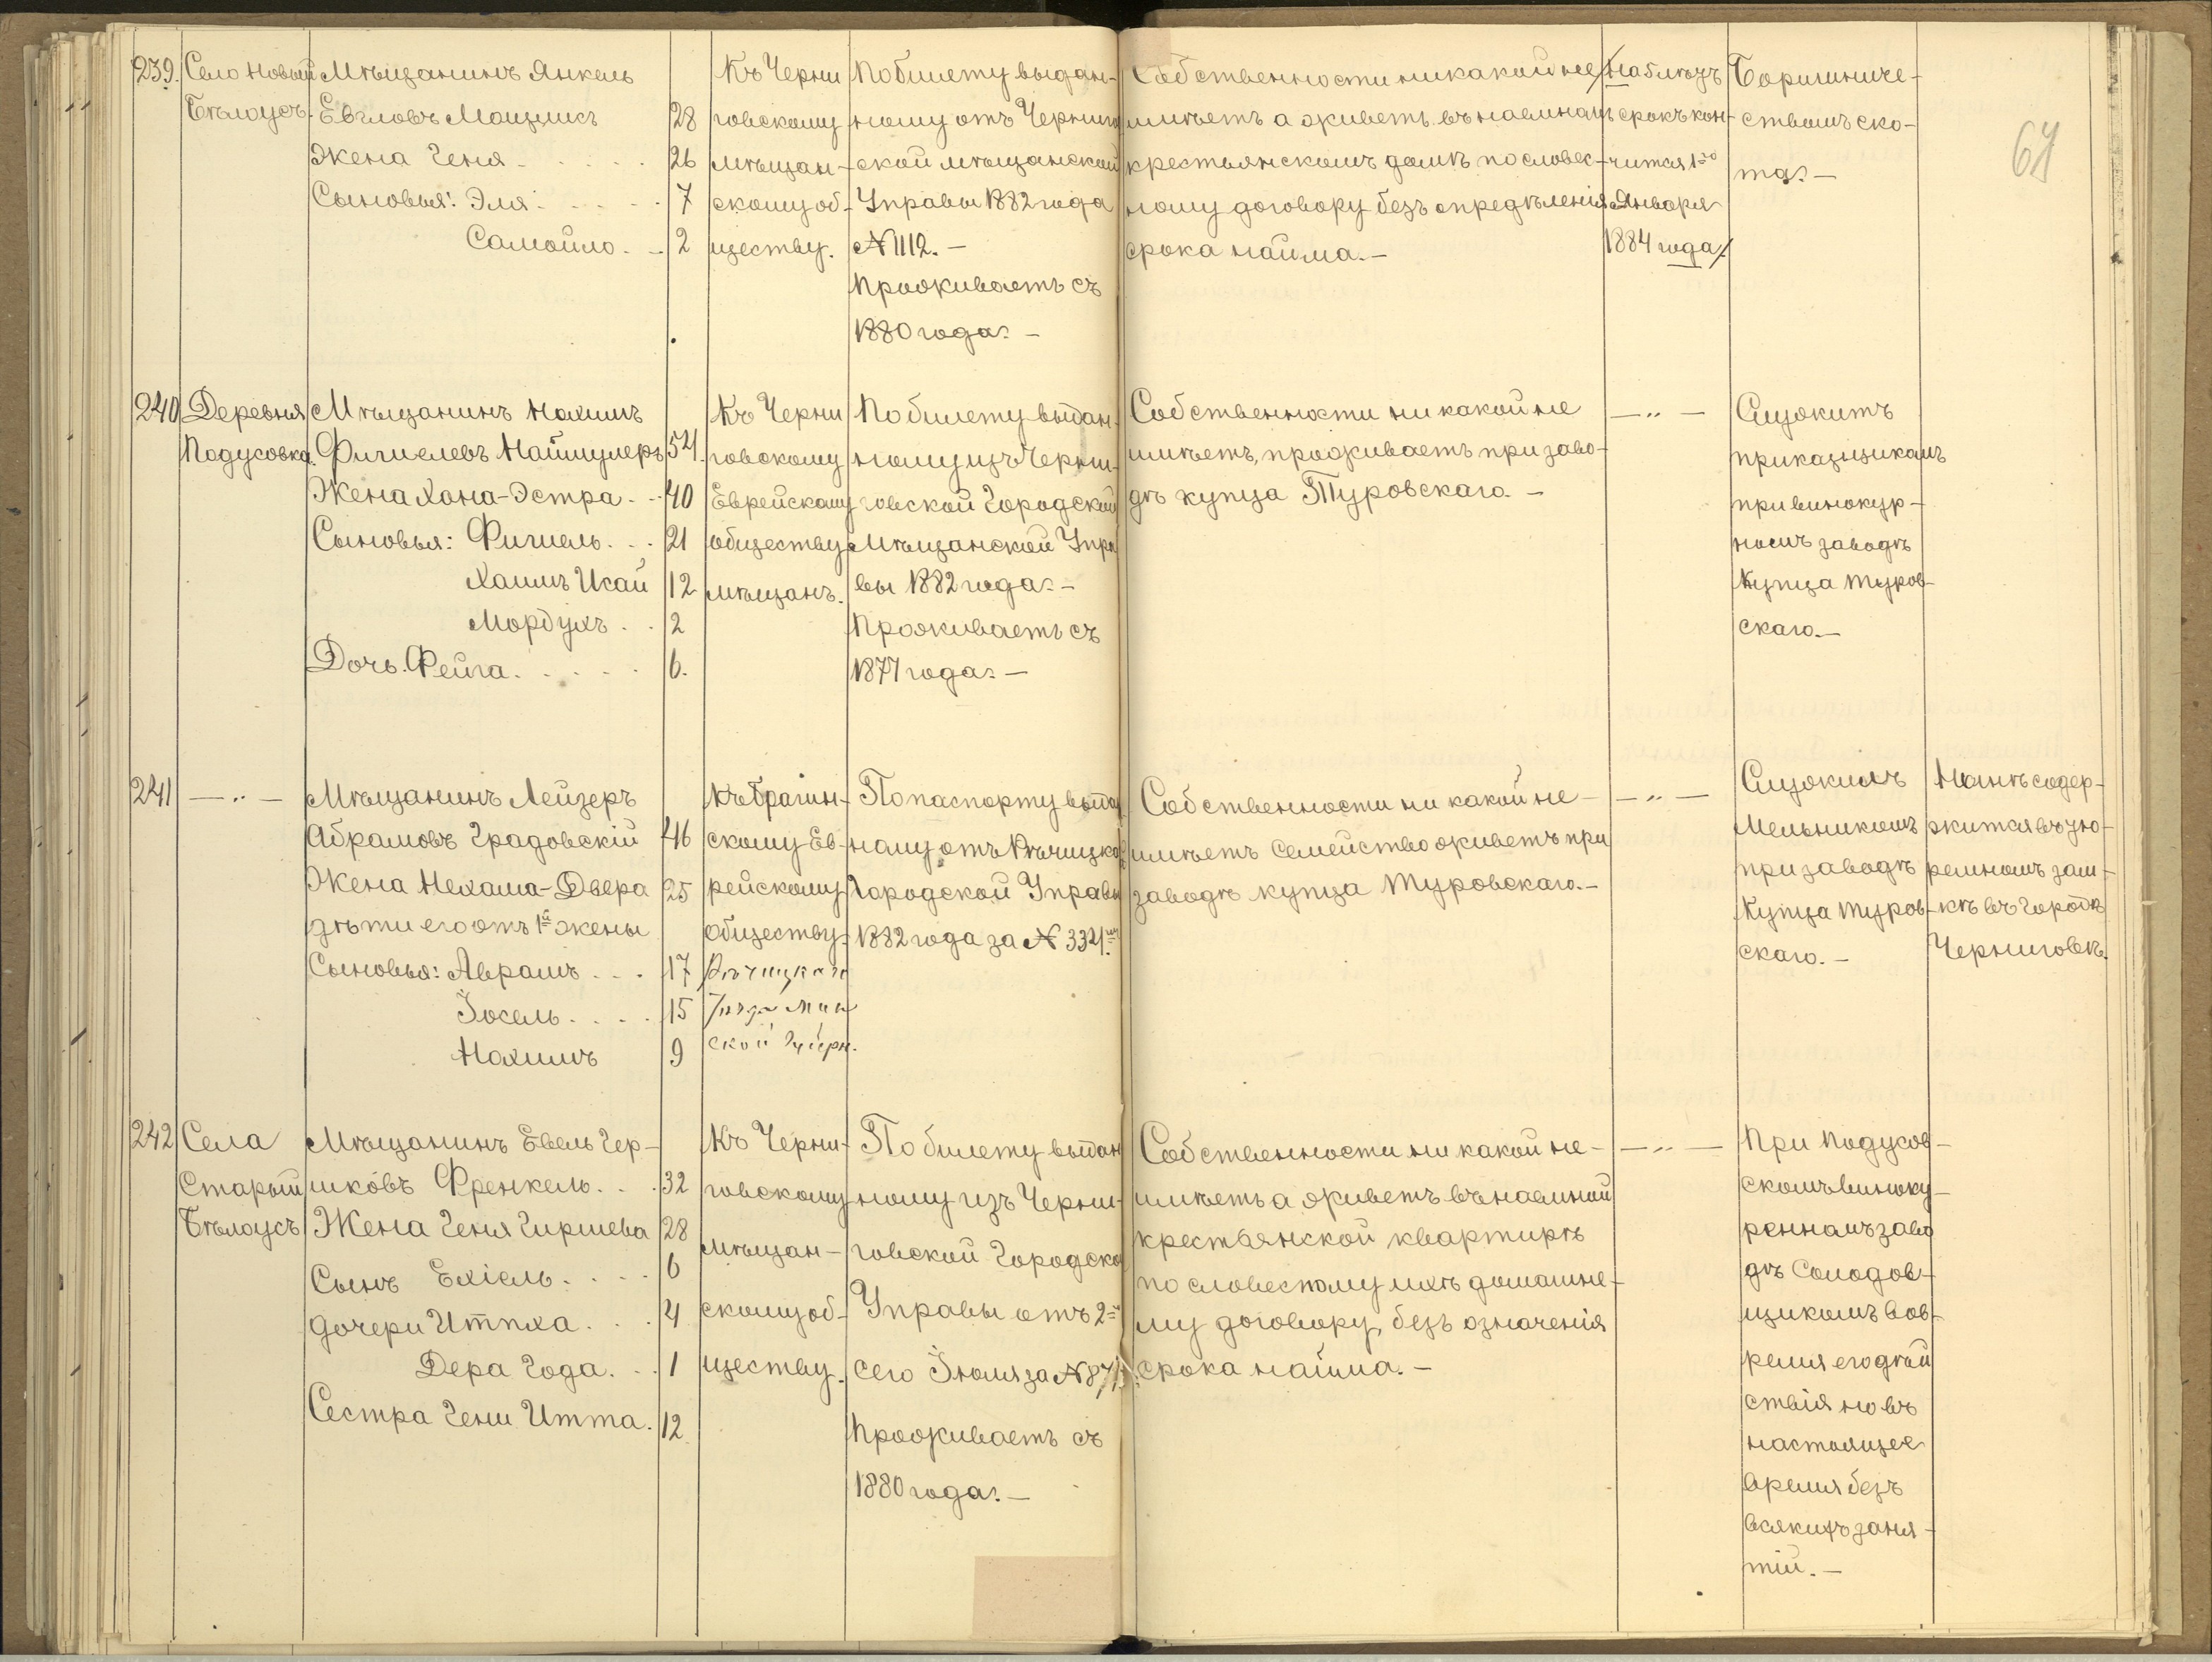 64
239.
Село Новый
Бѣлоусъ.
Мѣщанинъ Янкель
Евгловъ Мащликъ 28
Жена Геня 26
Сыновья: Эля 7
Самойло 2
Къ Черни
говскому
мѣщан-
скому об-
ществу.
По билету выдан-
ному отъ Чернигов
ской мѣщанской
Управы 1882 года
№ 1112.-
Проживаетъ съ
1880 года.-
Собственности никакой не
имѣетъ а живетъ въ наемномъ
крестьянскомъ домѣ по словес-
ному договору безъ опредѣленія
срока найма.-
срокъ кон-
чится 1го
Января
1884 года/
Баришниче-
ствомъ ско-
та.-
240
Деревня
Подусовка.
Мѣщанинъ Нахимъ
Фишелевъ Наймулеръ 54.
Жена Хана-Эстра 40
Сыновья: Фишель 21
Хаимъ Исай 12
Мордухъ 2
Дочь Фейга 6.
Къ Черни
говскому
Еврейскому
обществу
мѣщанъ.
По билету выдан-
ному изъ Черни-
говской Городской
Мѣщанской Упра
вы 1882 года.-
Проживаетъ съ
1877 года.-
Собственности ни какой не
имѣетъ, проживаетъ при заво-
дѣ купца Туровскаго.-
— " —
Служитъ
приказщикомъ
при винокур-
номъ заводѣ
Купца Туров-
скаго.-
241
— " —
Мѣщанинъ Лейзеръ
Абрамовъ Градовскій 46
Жена Нехама-Двера 25
дѣти его отъ 1й жены
Сыновья: Аврамъ 17
Іосель 15
Нахимъ 9
Къ Брагин-
скому Ев-
рейскому
обществу
Рѣчицкаго
Уѣзда Мин
ской Губерн.
По паспорту выдан
ному отъ Рѣчицкой
Городской Управы
1882 года за № 3321мъ
Собственности ни какой не-
имѣетъ Семейство живетъ при
заводѣ купца Туровскаго.-
— " —
Служилъ
Мельникомъ
при заводѣ
Купца Туров-
скаго.-
Нынѣ содер-
жится въ тю-
ремномъ зам-
кѣ въ городѣ
Черниговѣ.
242
Села
Старый
Бѣлоусъ
Мѣщанинъ Евель Гер-
шковъ Френкель 32
Жена Геня Гиршева 28
Сынъ Ехіель 6
Дочери Итпха 4
Дера Года 1
Сестра Гени Итта 12
Къ Черни-
говскому
мѣщан-
скому об-
ществу.
По билету выдан
ному изъ Черни-
говской Городской
Управы отъ 2го
сего Іюля за №
Проживаетъ съ
1880 года.-
Собственности ни какой не-
имѣетъ а живетъ въ наемной
крестьянской квартирѣ
по словесному ихъ домашне-
му договору, безъ означенія
срока найма.-
— " —
При Подусов-
скомъ виноку-
ренномъ заво
дѣ Солодов-
щикомъ вов-
ремя его дѣй
ствія но въ
настоящее
время безъ
всякихъ заня-
тій.-